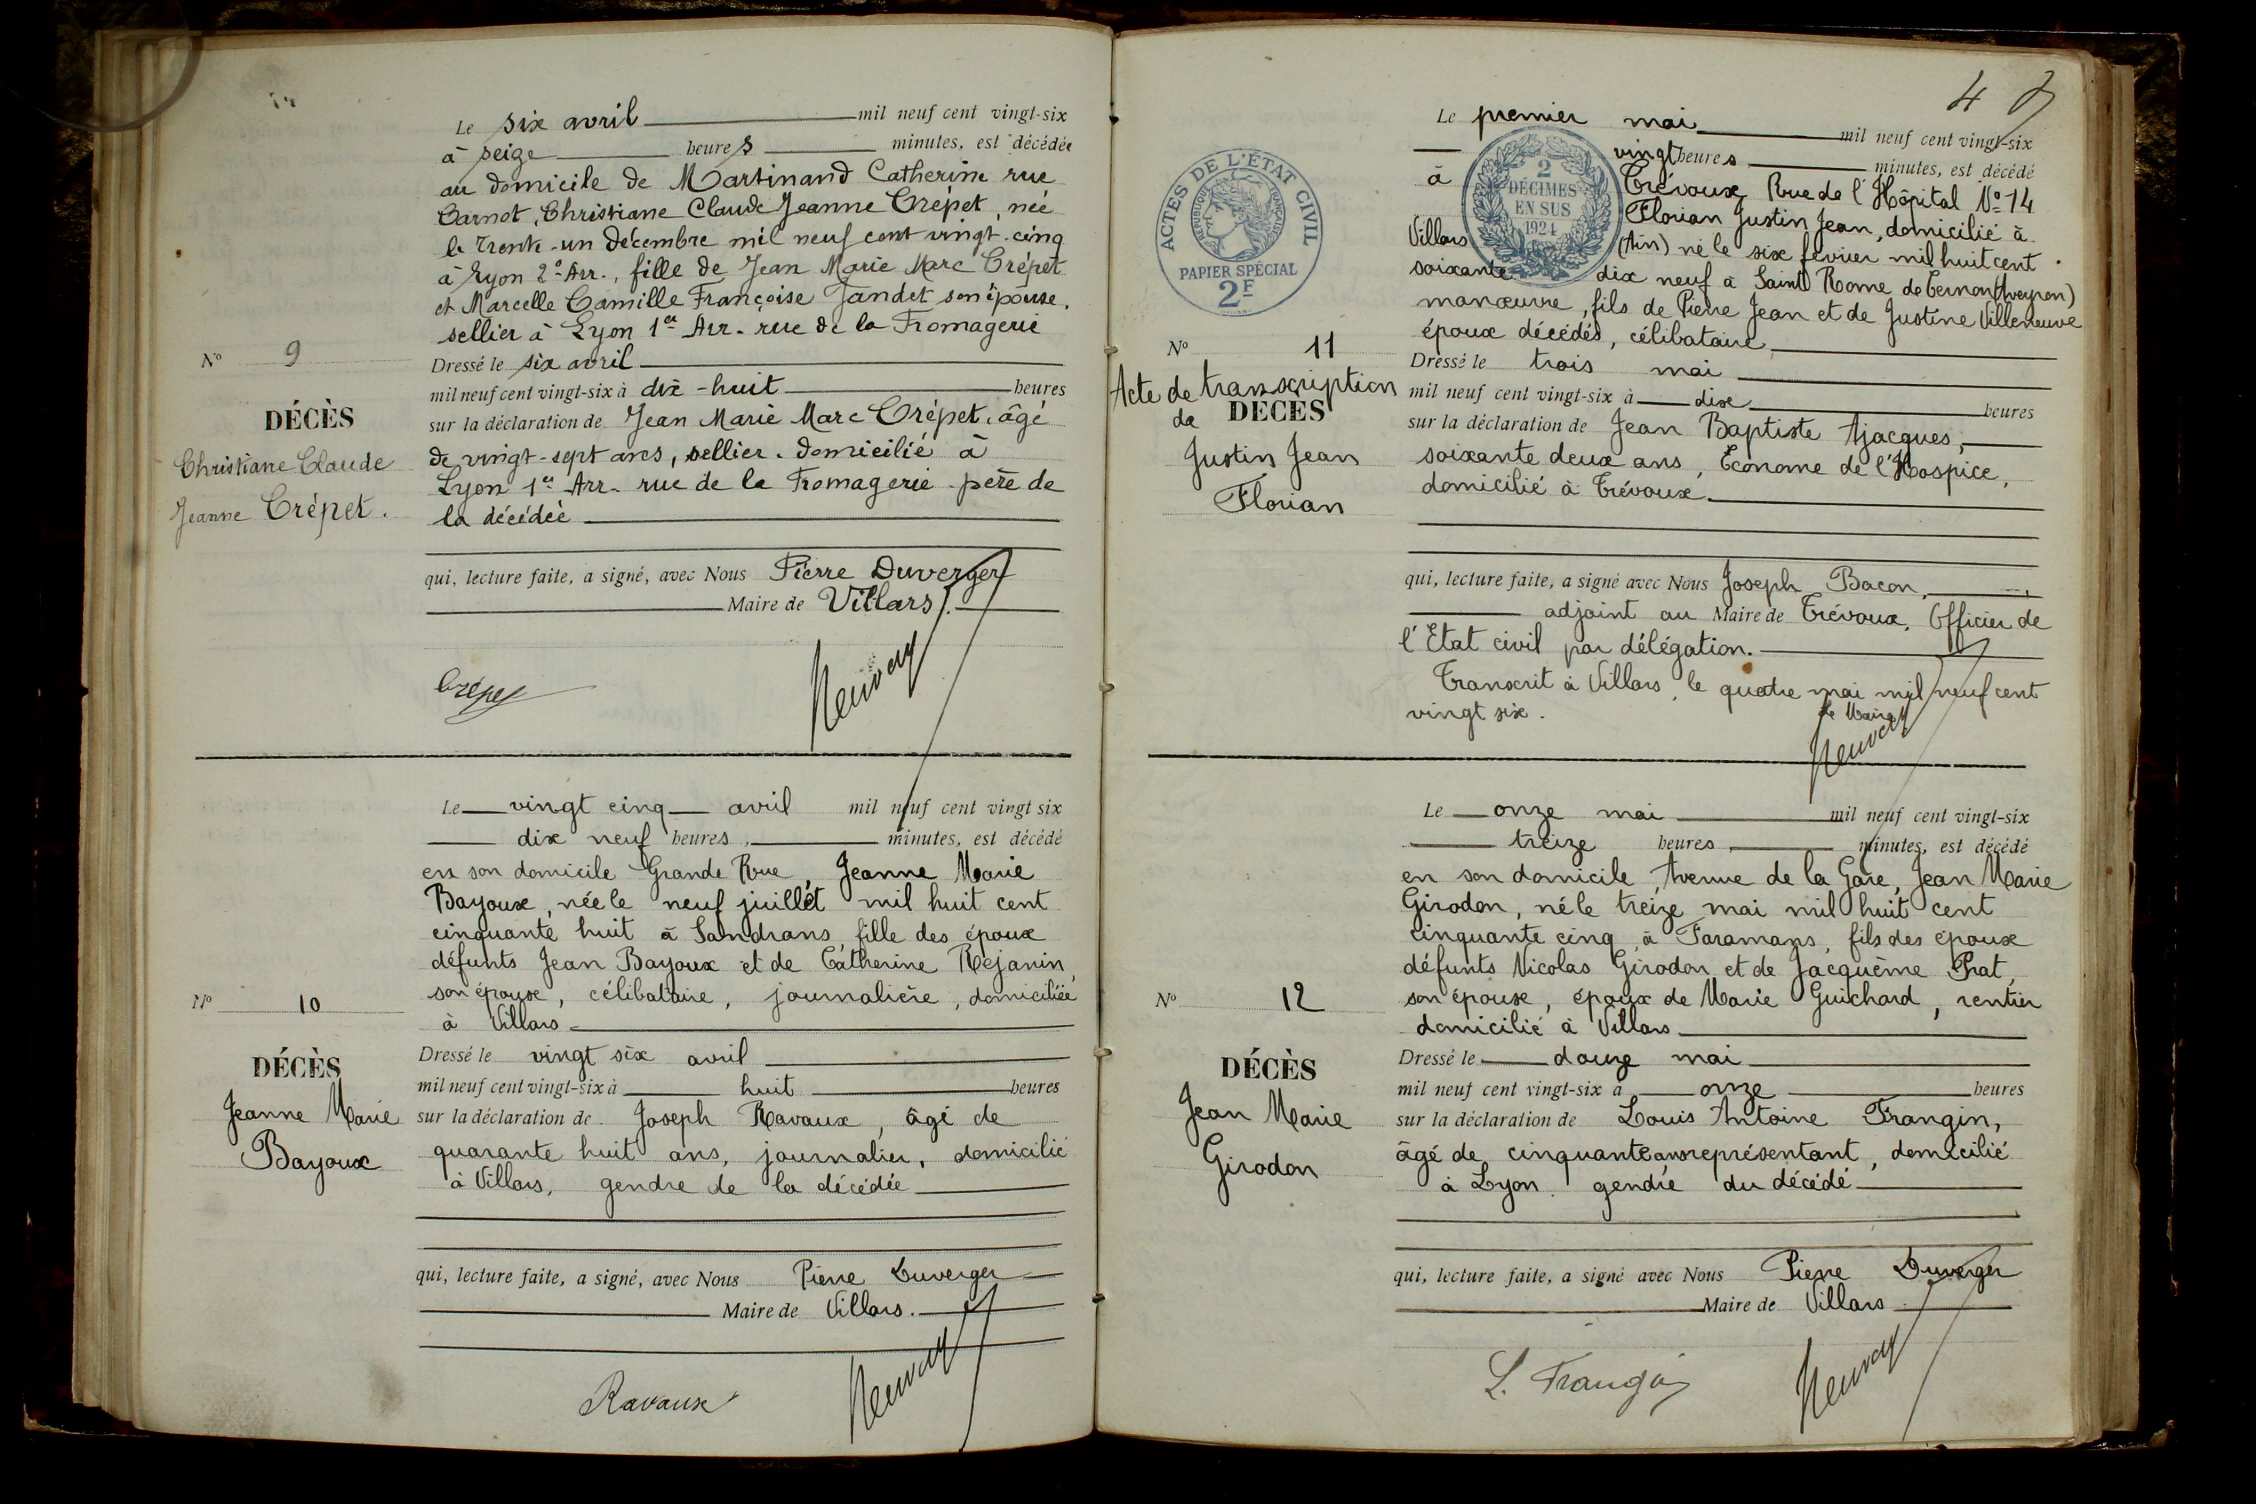 Le six avril mil neuf cent vingt-six
à seize heures minutes, est décédée
au domicile de Martinand Catherine rue
Carnot, Christiane Claude Jeanne Crépet, née
le trente-un décembre mil neuf cent vingt-cinq
à Lyon 2e Arr., fille de Jean Marie Marc Crépet
et Marcelle Camille Françoise Jandet son épouse.
sellier à Lyon 1er Arr. rue de la Fromagerie
No 9
Dressé le six avril
mil neuf cent vingt-six à dix-huit heures
DÉCÈS
sur la déclaration de Jean Marie Marc Crépet, âgé
Christiane Claude
de vingt-sept ans, sellier. domicilié à
Lyon 1er Arr. rue de la Fromagerie père de
Jeanne Crépet.
la décédée
qui, lecture faite, a signé, avec Nous Pierre Duverger
Maire de Villars.
Crépet
Le vingt cinq avril mil neuf cent vingt six
dix neuf heures, minutes, est décédé
en son domicile Grande Rue, Jeanne Marie
Bayoux, née le neuf juillet mil huit cent
cinquante huit à Sandrans, fille des époux
défunts Jean Bayoux et de Catherine Rejanin,
son épouse, célibataire, journalière, domiciliée
No 10
à Villars
Dressé le vingt six avril
DÉCÈS
mil neuf cent vingt-six à huit heures
Jeanne Marie
sur la déclaration de Joseph Ravaux, âgé de
Bayoux
quarante huit ans, journalier, domicilié
à Villars, gendre de la décédée
qui, lecture faite, a signé, avec Nous Pierre Duverger
Maire de Villars.
Ravaux
4
Le premier mai mil neuf cent vingt-six
vingt heures minutes, est décédé
à Trévoux Rue de l'Hôpital No 14
Florian Justin Jean, domicilié à
Villars (Ain) né le six février mil huit cent
soixante dix neuf à Saint Rome de Cernon (Aveyron)
manœuvre, fils de Pierre Jean et de Justine Villeneuve
époux décédés, célibataire
ACTES DE L'ÉTAT CIVIL
RÉPUBLIQUE FRANÇAISE
PAPIER SPÉCIAL
2F
2
DÉCIMES
EN SUS
1924
No 11
Dressé le trois mai
Acte de transcription
mil neuf cent vingt-six à dix heures
de DÉCÈS
sur la déclaration de Jean Baptiste Ajacques,
Justin Jean
soixante deux ans, Econome de l'Hospice,
Florian
domicilié à Trévoux
qui, lecture faite, a signé avec Nous Joseph Bacon,
adjoint au Maire de Trévoux, Officier de
l'Etat civil par délégation.
Transcrit à Villars, le quatre mai mil neuf cent
vingt six.
le Maire
Le onze mai mil neuf cent vingt-six
treize heures, minutes, est décédé
en son domicile, Avenue de la Gare, Jean Marie
Girodon, né le treize mai mil huit cent
cinquante cinq à Faramans, fils des époux
défunts Nicolas Girodon et de Jacquème Prat,
No 12
son épouse, époux de Marie Guichard, rentier
domicilié à Villars
DÉCÈS
Dressé le douze mai
mil neuf cent vingt-six à onze heures
Jean Marie
sur la déclaration de Louis Antoine Frangin,
Girodon
âgé de cinquante ans représentant, domicilié
à Lyon. gendre du décédé
qui, lecture faite, a signé avec Nous Pierre Duverger
Maire de Villars
L. Frangin